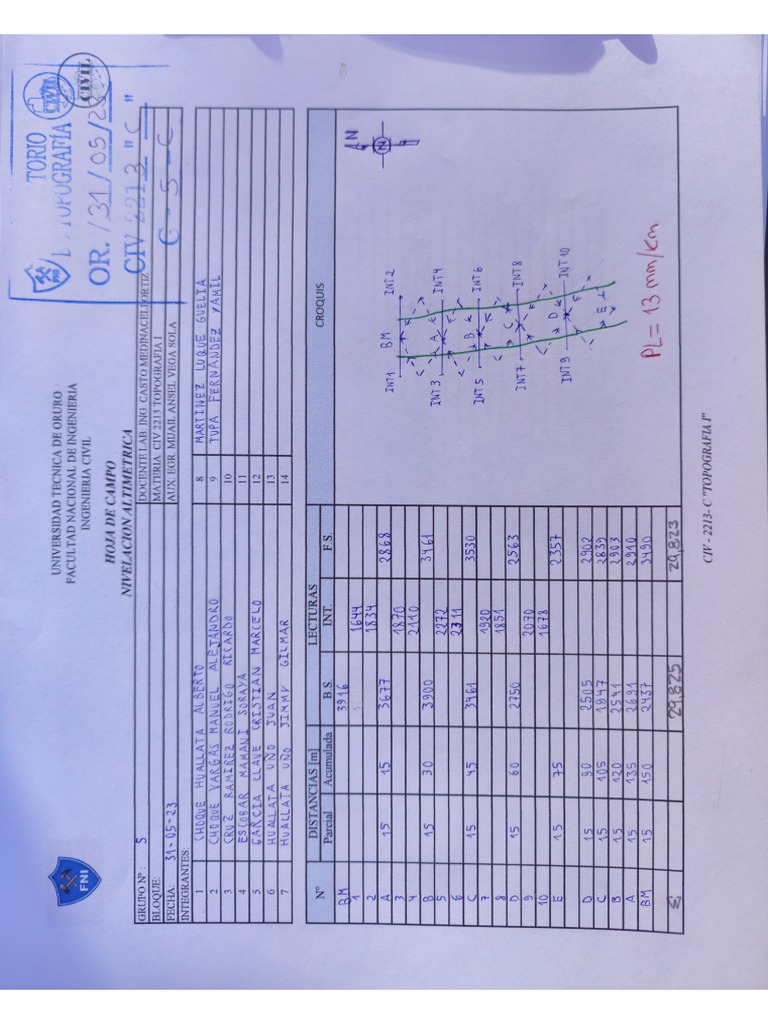 UNIVERSIDAD TECNICA DE ORURO
FACULTAD NACIONAL DE INGENIERIA
INGENIERIA CIVIL
FNI
TORIO
TOPOGRAFÍA
CIVIL
CIVIL
OR. /31/05/2
CIV 2213 "C"
C - 5 - C
HOJA DE CAMPO
NIVELACION ALTIMETRICA
GRUPO Nº : 5 DOCENTE LAB: ING. CASTO MEDINACELI ORTIZ
BLOQUE: MATERIA: CIV 2213 TOPOGRAFIA I
FECHA: 31-05-23 AUX: EGR. MIJAIL ANSEL VEGA SOLA
INTEGRANTES:
1 CHOQUE HUALLATA ALBERTO 8 MARTINEZ LUQUE GUELIA
2 CHOQUE VARGAS MANUEL ALEJANDRO 9 TUPA FERNÁNDEZ YAMIL
3 CRUZ RAMIREZ RODRIGO RICARDO 10
4 ESCOBAR MAMANI SORAYA 11
5 GARCIA LLAVE CRISTIAN MARCELO 12
6 HUALLATA UÑO JUAN 13
7 HUALLATA UÑO JIMMY GILMAR 14
Nº DISTANCIAS [m] LECTURAS CROQUIS
Parcial Acumulada B.S INT. F.S.
BM 3916
1 1644
2 1834
A 15 15 3677 2868
3 1870
4 2110
B 15 30 3900 3461
5 2272
6 2311
C 15 45 3461 3530
7 1920
8 1851
D 15 60 2750 2563
9 2070
10 1678
E 15 75 2357
D 15 90 2505 2902
C 15 105 1947 2839
B 15 120 2541 2903
A 15 135 2691 2910
BM 15 150 2437 3490
Σ 29,825 29,823
N
INT1 BM INT2
INT3 A INT4
INT5 B INT6
INT7 C INT8
INT9 D INT10
E
PL = 13 mm/Km
CIV - 2213- C "TOPOGRAFIA I"